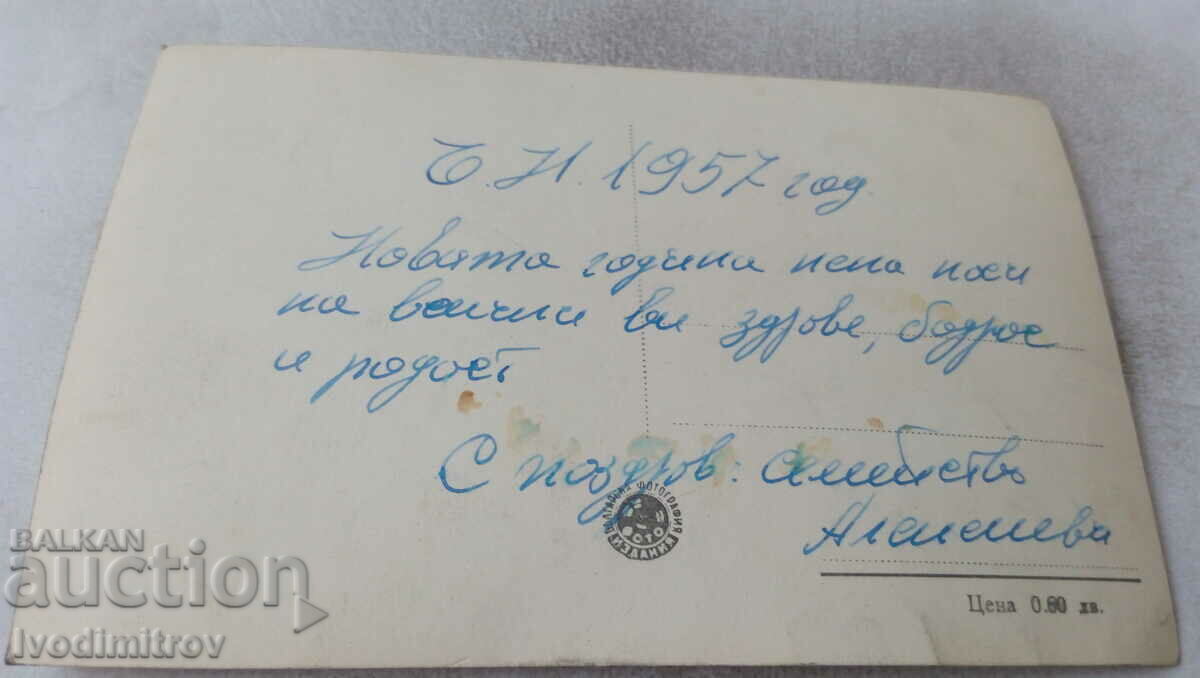 Ч.Н. 1957 год.
Новата година нека носи
на всички ви здраве, бодрос
и радост
С поздрав: семейство
БЪЛГАРСКА ФОТОГРАФИЯ
ФОТО
ИЗДАНИЕ
Цена 0.60 лв.
BALKAN
auction
Ivodimitrov